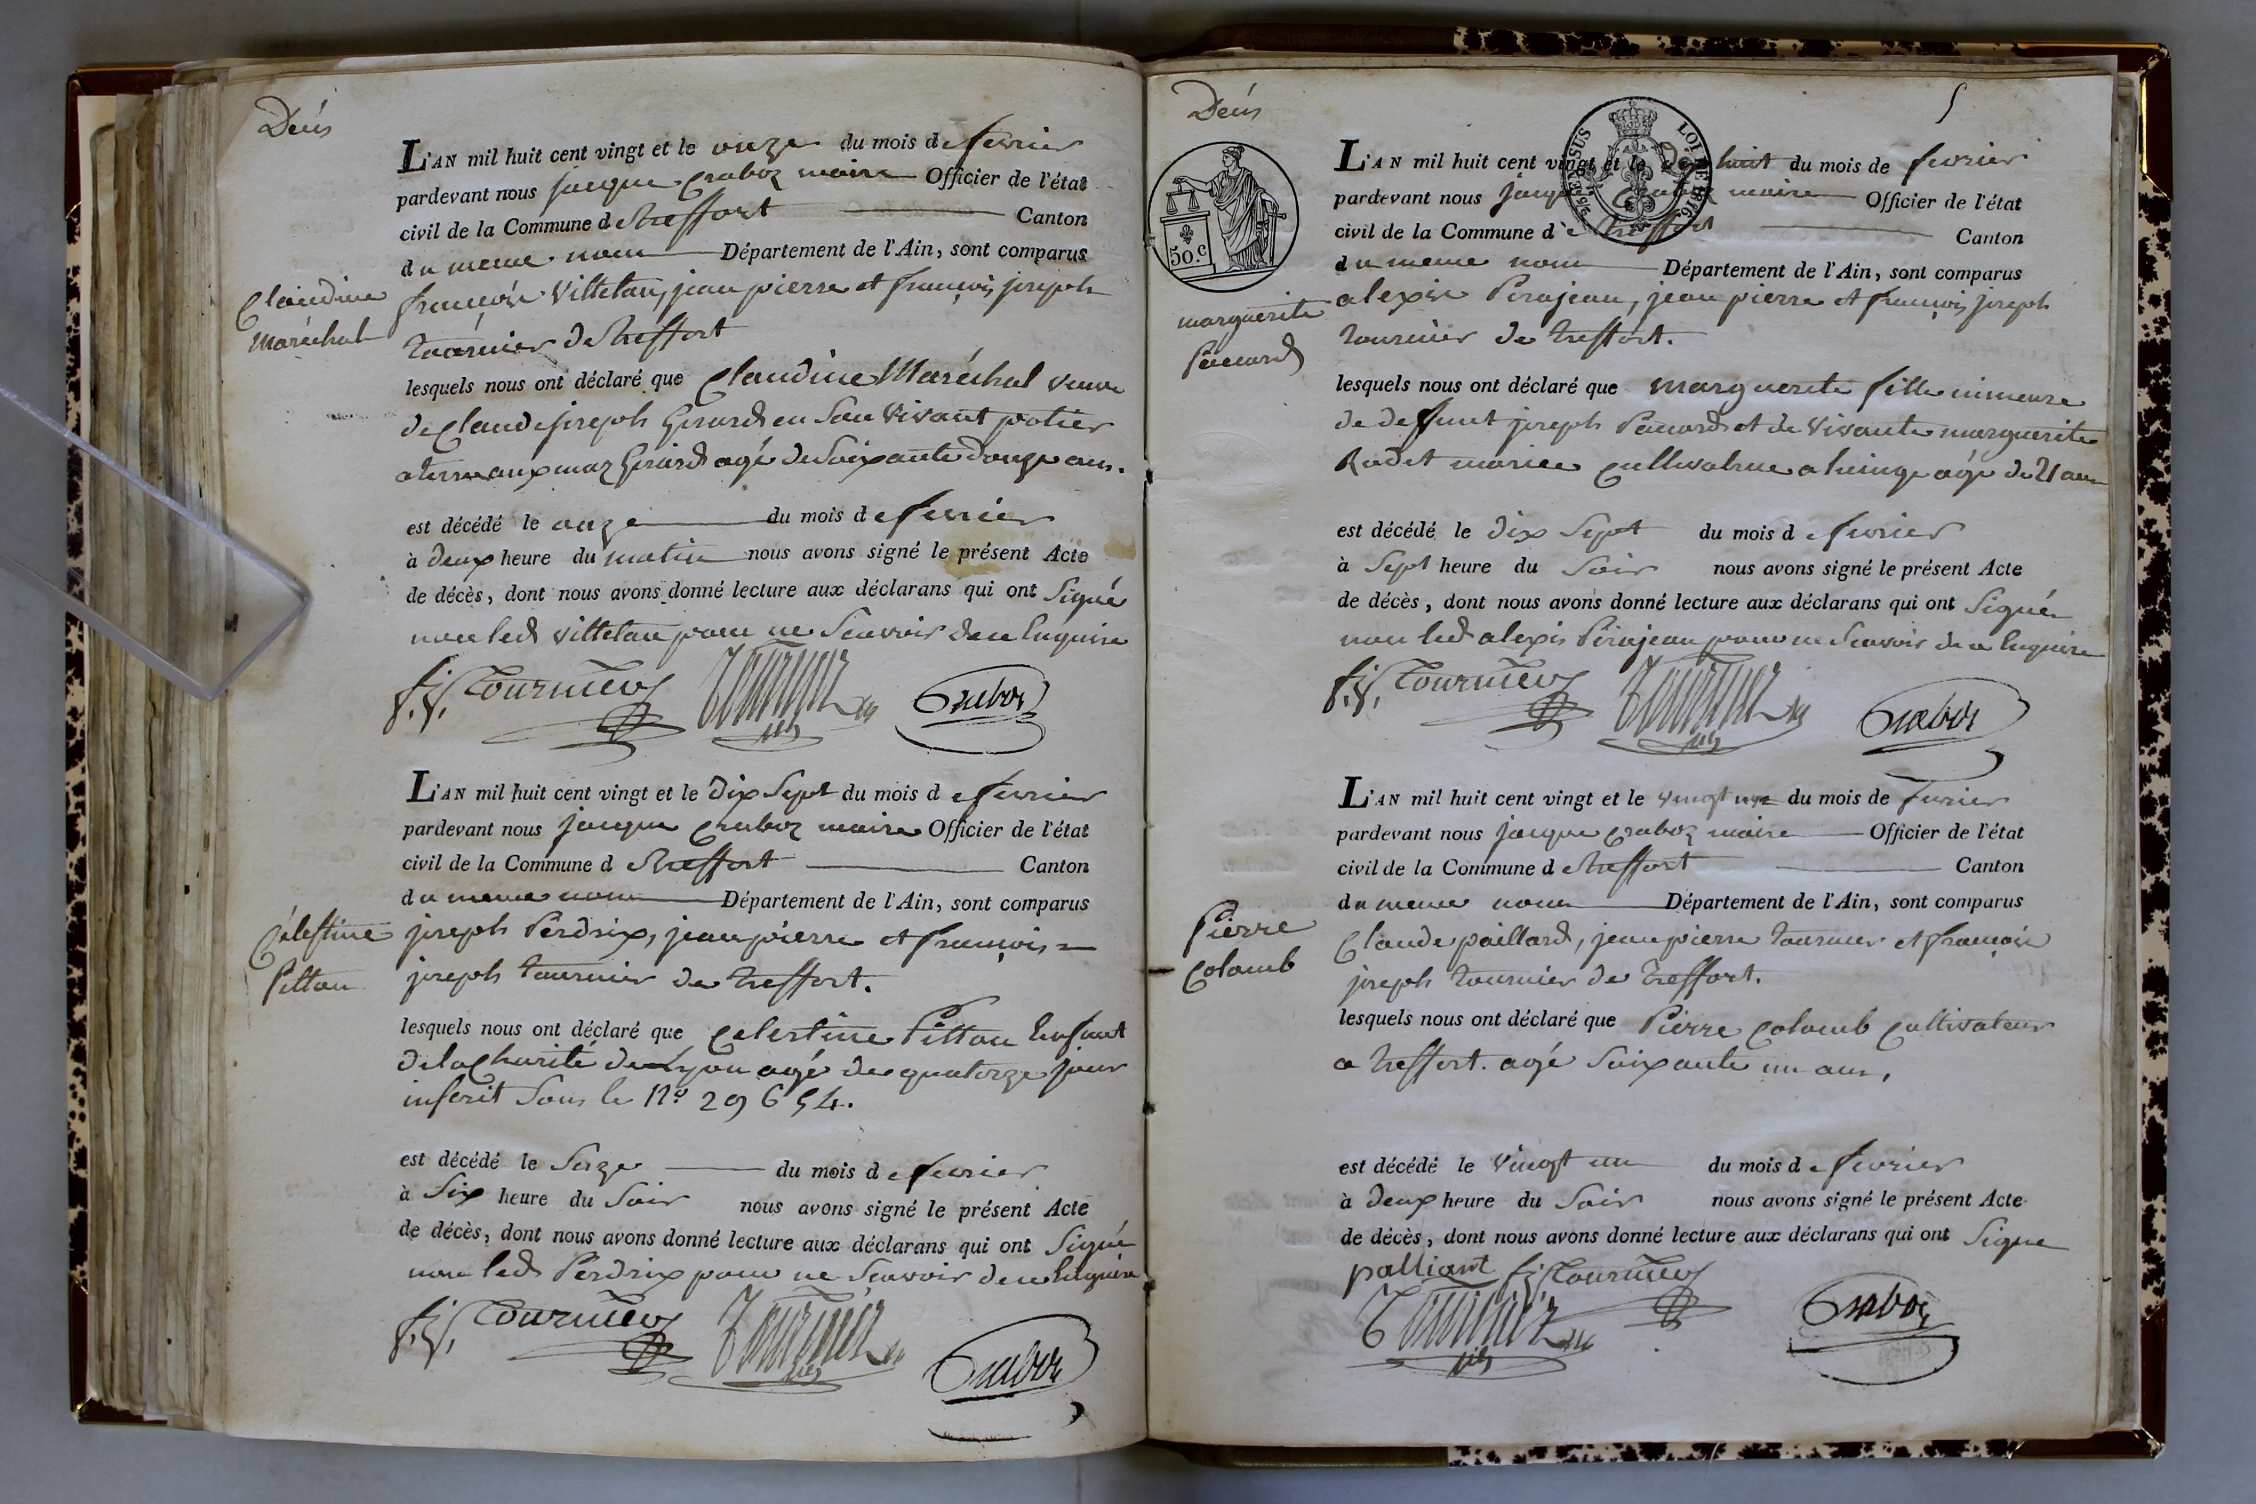 Décès
L'AN mil huit cent vingt et le onze du mois de fevrier
pardevant nous jacque Craboz maire Officier de l'état
civil de la Commune de treffort Canton
du meme nom Département de l'Ain, sont comparus
Claudine
Maréchal
françois Villetan, jean pierre et françois joseph
tournier de treffort
lesquels nous ont déclaré que Claudine Maréchal veuve
de Claude joseph Girard en Son Vivant potier
a terre aux Girard agé de Soixante douze ans.
est décédé le onze du mois de fevrier
à deux heure du matin nous avons signé le présent Acte
de décès, dont nous avons donné lecture aux déclarans qui ont Signé
non led Villetan pour ne Scavoir de ce Enquire
f. j. Tournier Tournier Craboz
L'AN mil huit cent vingt et le dix Sept du mois de fevrier
pardevant nous jacque Craboz maire Officier de l'état
civil de la Commune de treffort Canton
du meme nom Département de l'Ain, sont comparus
Célestine
Pitton
joseph Perdrix, jean pierre et françois
joseph tournier de treffort.
lesquels nous ont déclaré que Celestine Pitton Enfant
de la Charité de Lyon agé de quatorze jour
inscrit Sous le No 29654.
est décédé le Seize du mois de fevrier
à Six heure du Soir nous avons signé le présent Acte
de décès, dont nous avons donné lecture aux déclarans qui ont Signé
non led Perdrix pour ne Scavoir de ce Enquire
f. j. Tournier Tournier Craboz
Décès
5
50.c
LOI DE 1816.
L'AN mil huit cent vingt et le dix huit du mois de fevrier
pardevant nous jacque Craboz maire Officier de l'état
civil de la Commune de treffort Canton
du meme nom Département de l'Ain, sont comparus
marguerite
Panard
alexis Perajean, jean pierre et françois joseph
tournier de treffort.
lesquels nous ont déclaré que marguerite fille mineure
de deffunt joseph Panard et de Vivante marguerite
Radet mariee Cultivatrice a agé de 21 ans
est décédé le dix Sept du mois de fevrier
à Sept heure du Soir nous avons signé le présent Acte
de décès, dont nous avons donné lecture aux déclarans qui ont Signé
non led alexis Perajean pour ne Scavoir de ce Enquire
f. j. Tournier Tournier Craboz
L'AN mil huit cent vingt et le vingt un du mois de fevrier
pardevant nous jacque Craboz maire Officier de l'état
civil de la Commune de treffort Canton
du meme nom Département de l'Ain, sont comparus
Pierre
Colomb
Claude paillard, jean pierre tournier et françois
joseph tournier de treffort.
lesquels nous ont déclaré que Pierre Colomb Cultivateur
a treffort. agé Soixante un ans,
est décédé le vingt un du mois de fevrier
à deux heure du Soir nous avons signé le présent Acte
de décès, dont nous avons donné lecture aux déclarans qui ont Signé
palliant f. j. Tournier
Tournier Craboz